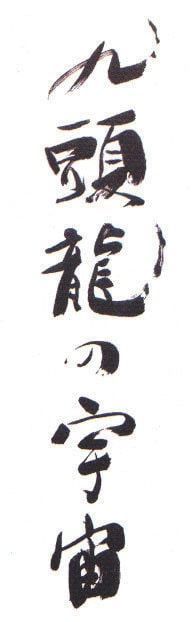 九頭龍の宇宙